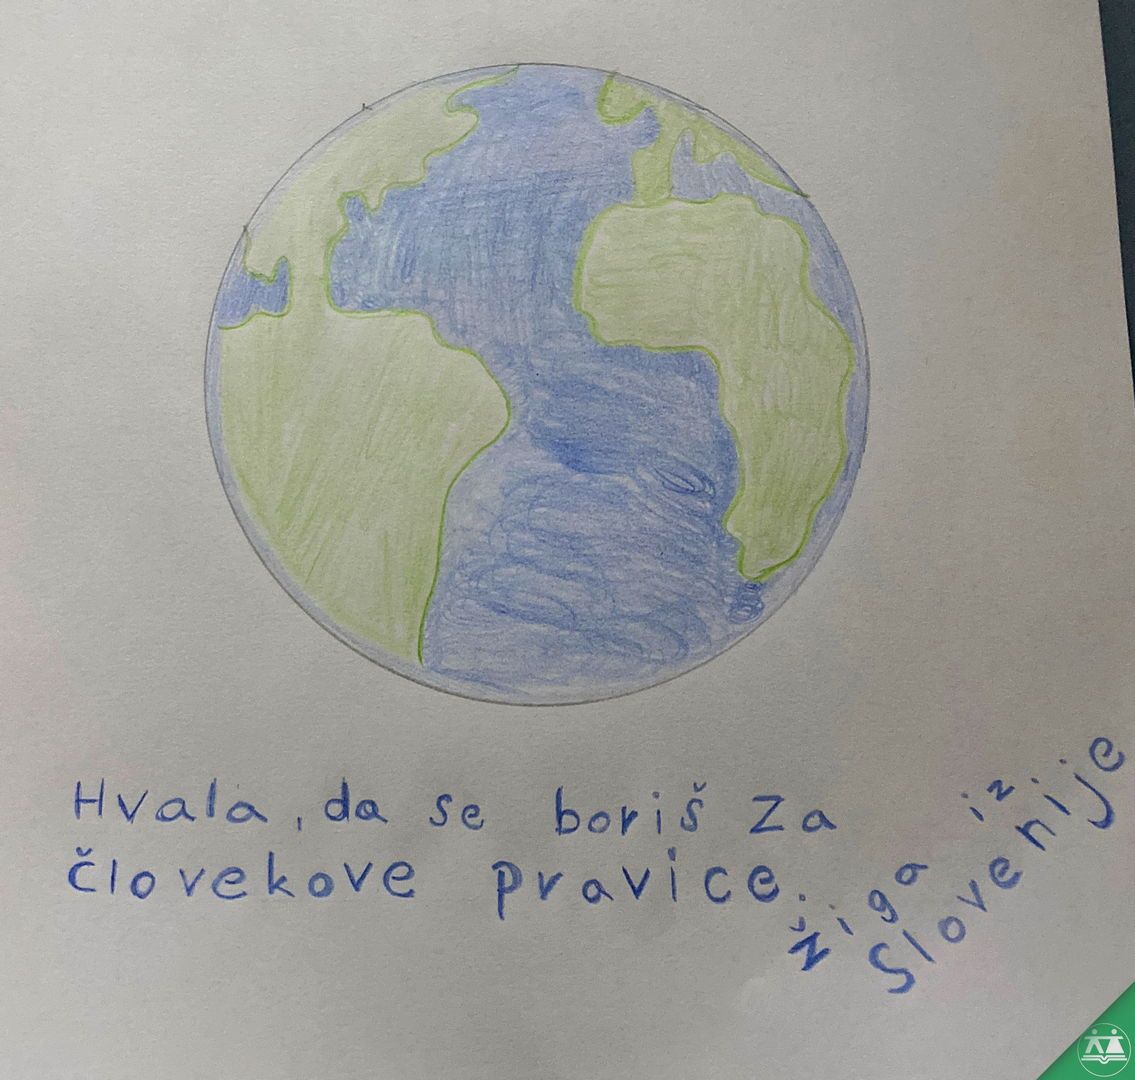 Hvala, da se boriš za
človekove pravice.
Žiga iz
Slovenije